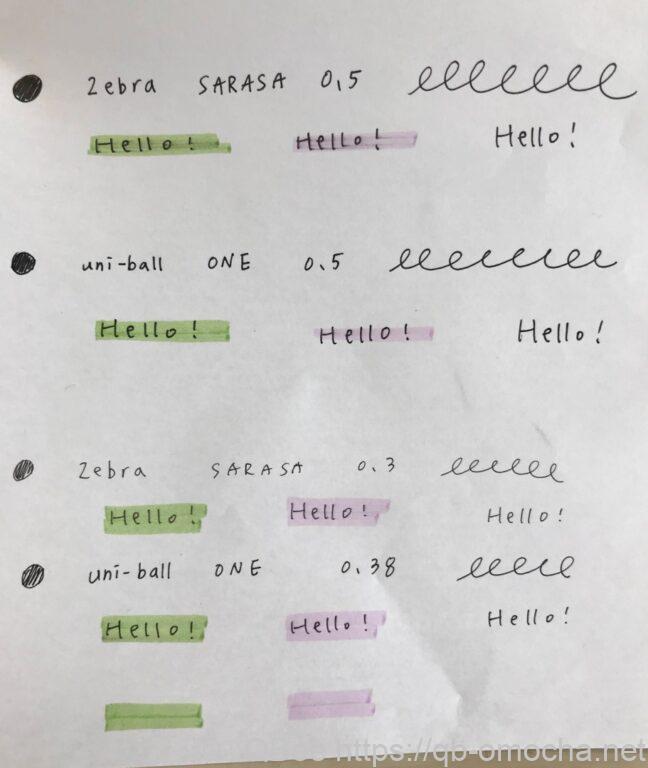 Zebra SARASA 0.5
Hello! Hello! Hello!
uni-ball ONE 0.5
Hello! Hello! Hello!
Zebra SARASA 0.3
Hello! Hello! Hello!
uni-ball ONE 0.38
Hello! Hello! Hello!
https://qb-omocha.net